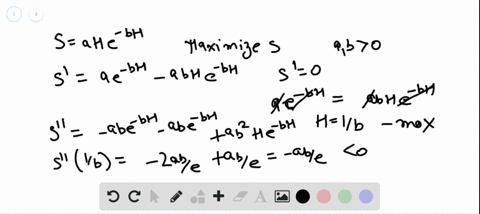 S = aHe^{-bH} Maximize S a,b > 0
S' = ae^{-bH} - abHe^{-bH} S' = 0
ae^{-bH} = abHe^{-bH}
S'' = -abe^{-bH} - abe^{-bH} + ab²He^{-bH} H = 1/b - max
S''(1/b) = -2ab/e + ab/e = -ab/e < 0
A